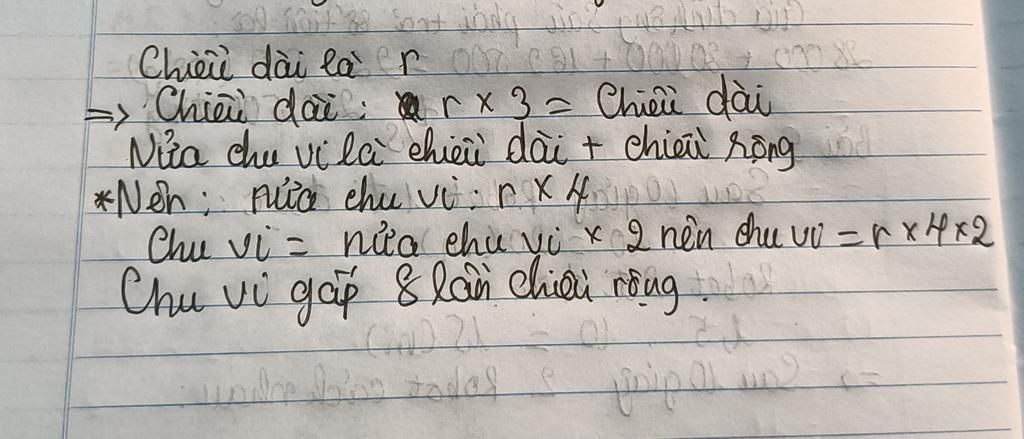 Chiều dài là r
=> Chiều dài : r x 3 = Chiều dài
Nửa chu vi là chiều dài + chiều rộng
*Nên : nửa chu vi : r x 4
Chu vi = nửa chu vi x 2 nên chu vi = r x 4 x 2
Chu vi gấp 8 lần chiều rộng .